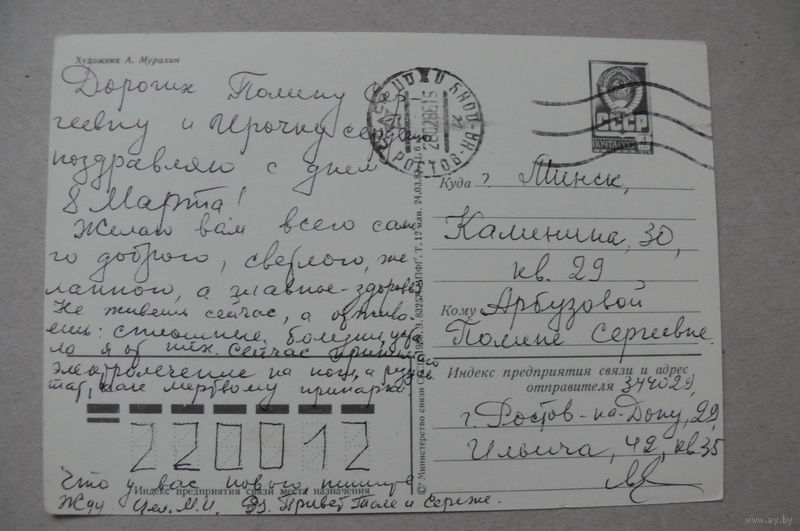 Художник А. Мурахин
Дорогих Полину Сер-
геевну и Ирочку сердечно
поздравляю с днем
8 Марта!
Желаю вам всего само-
го доброго, светлого, же
ланного, а главное - здоровья
Не живешь сейчас, а отжива-
ешь: сплошные болезни, уста
ла я от них. Сейчас принимаю
электролечение на ноги, а
тат, как мертвому припарка.
220012
Индекс предприятия связи места назначения
Что у вас нового, пишите
Жду. Цел. М.И. Привет Толе и Сереже.
СССР
РОСТОВ-НА-
СССР
ПОЧТА
4
Куда г. Минск,
Калинина, 30,
кв. 29
Кому Арбузовой
Полине Сергеевне.
Индекс предприятия связи и адрес
отправителя 344029,
г. Ростов-на-Дону, 29,
Ильича, 42, кв 35
© Министерство связи
24.03.83
www.ay.by